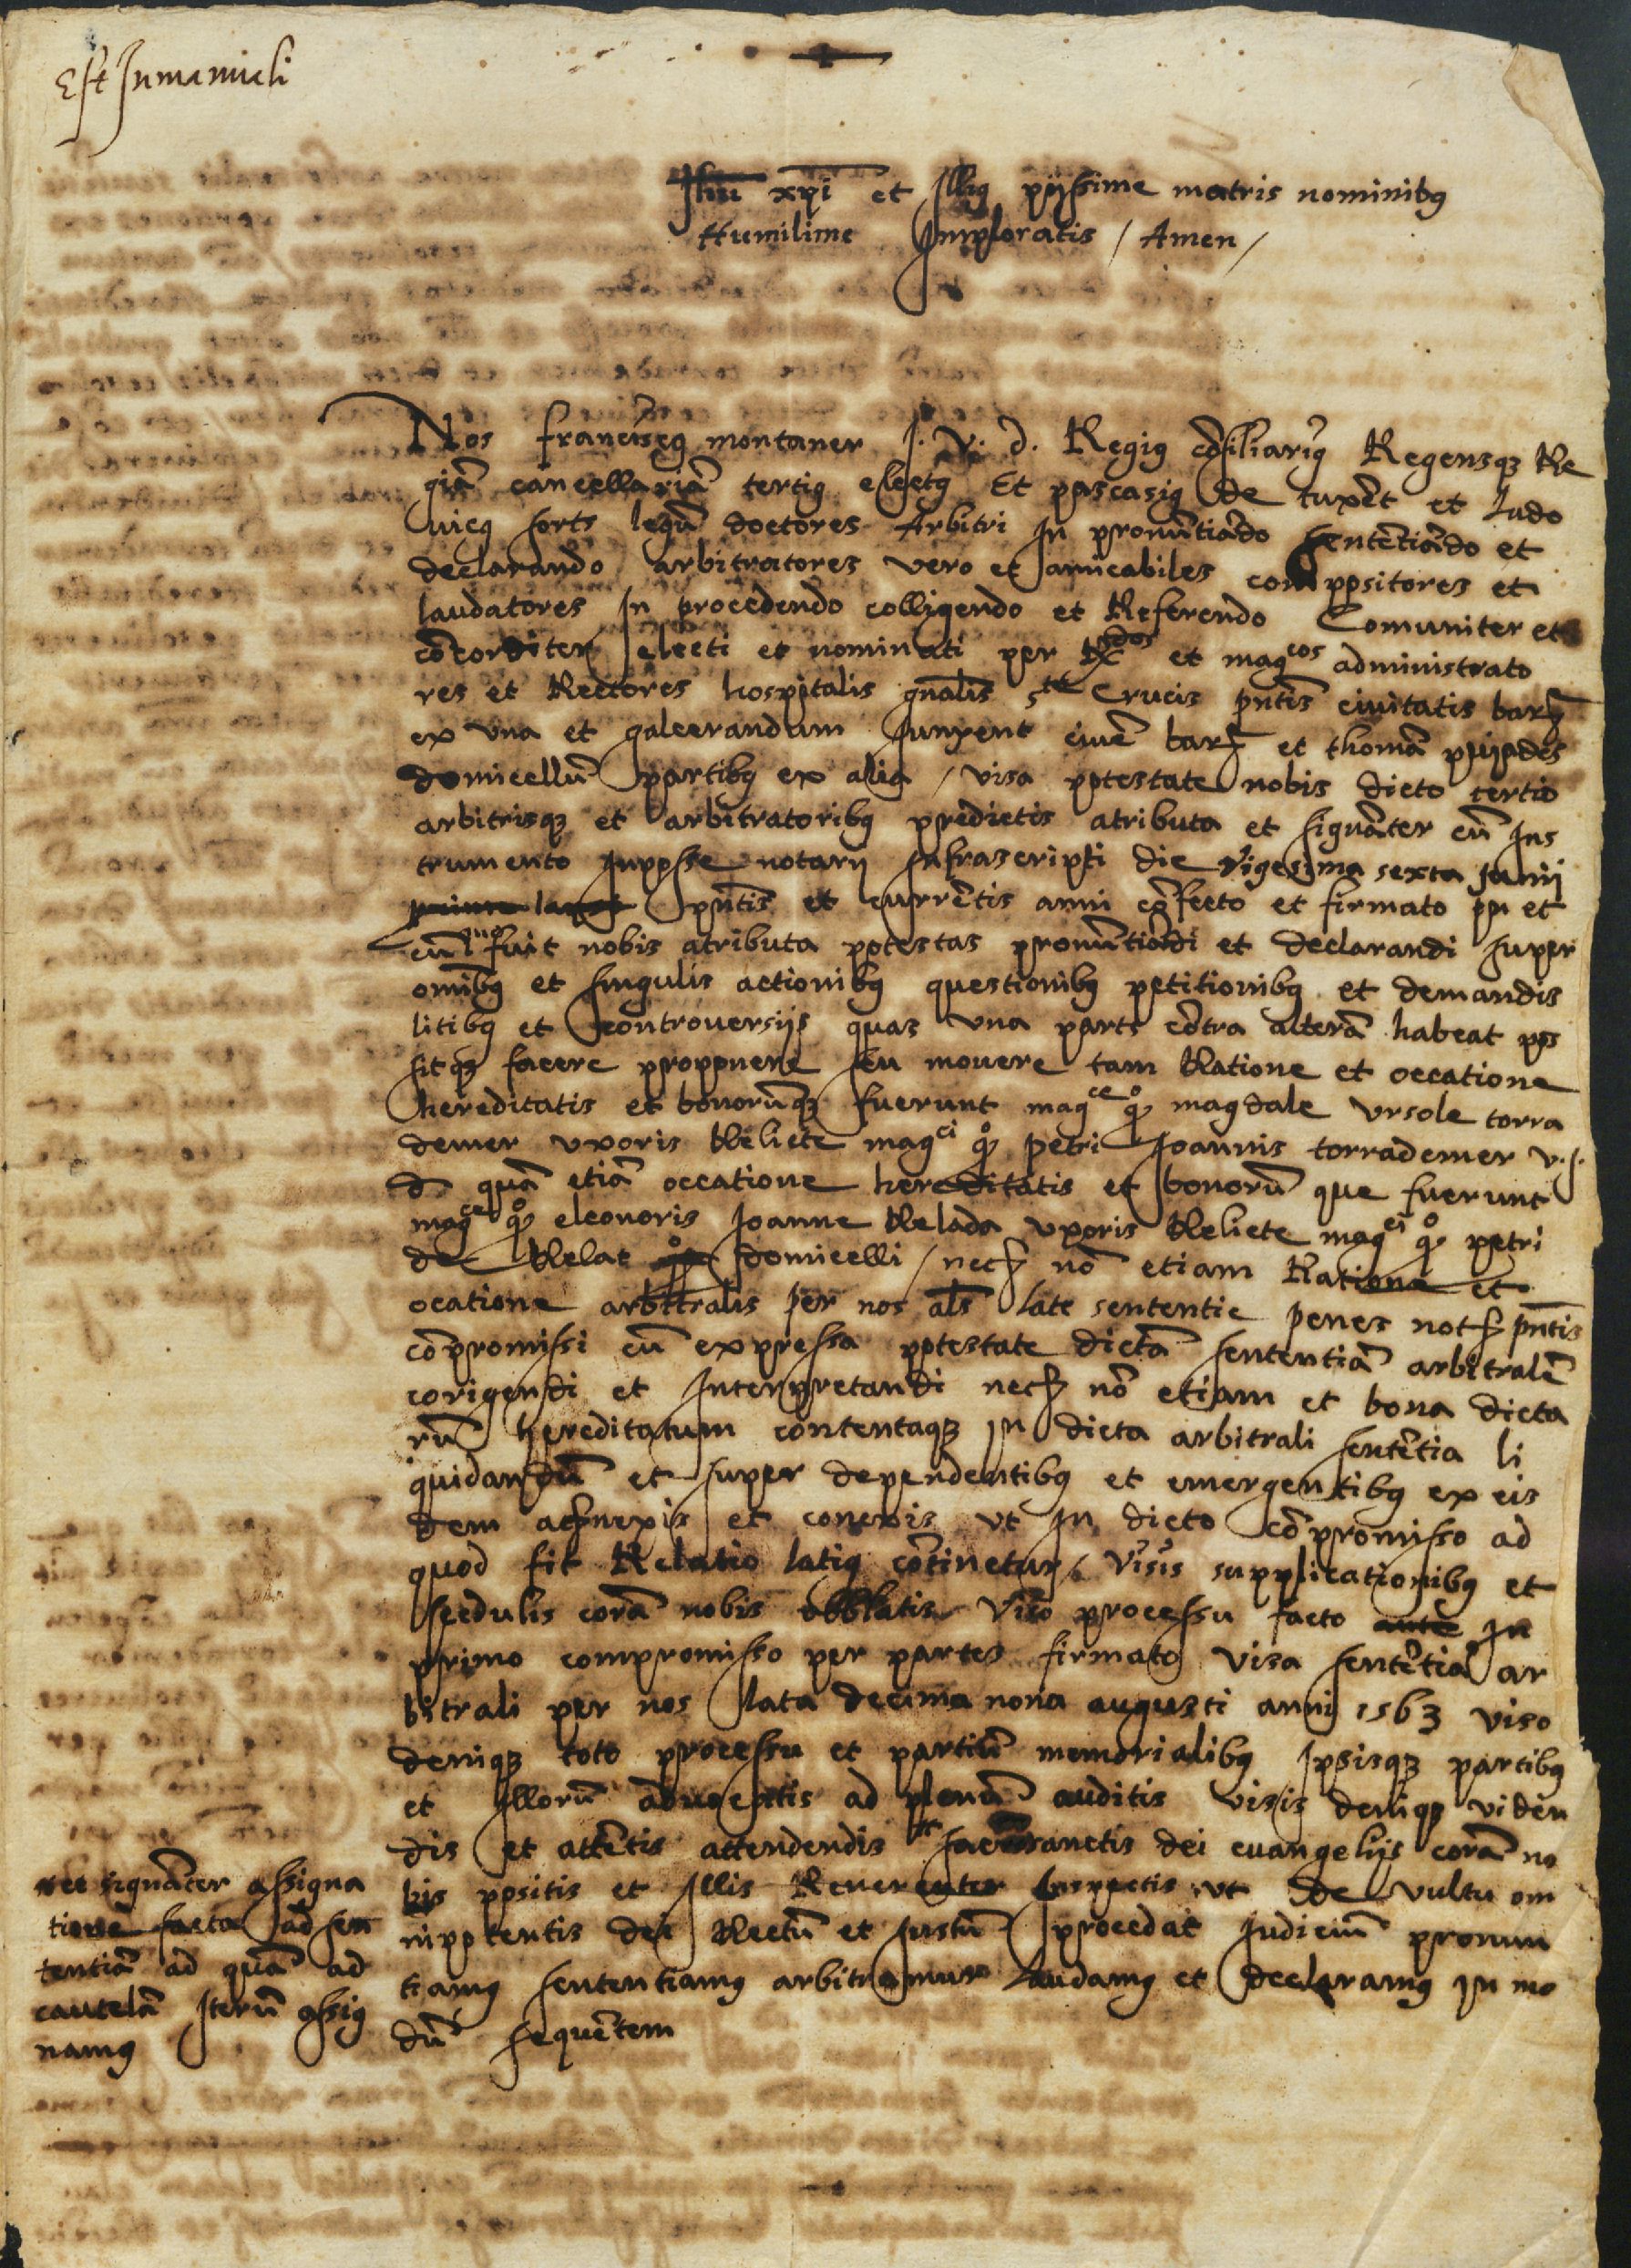 Est In manuali
Jhu xpi et Illiꝰ pijssime matris nominibꝰ
Humilime Imploratis / Amen /
Nos franciscꝰ montaner J. V. d. Regiꝰ cōsiliariꝰ Regensqꝫ Re
giā cancellariā tertiꝰ electꝰ Et pascasiꝰ de tuxēt et Ludo
uicꝰ sorts legū doctores Arbitri In pronūtiādo sentētiādo et
declarando arbitratores vero et amicabiles compositores et
laudatores In procedendo colligendo et Referendo Comuniter et
cōcorditer electi et nominati per Rdos et magcos administrato
res et Rectores hospitalis gnālis ste Crucis pntīs ciuitatis barꝫ
ex vna et galcerandum Junyent ciuē barꝫ et thomā pujades
domicellū partibꝰ ex alia / visa potestate nobis dicto tertio
arbitrisqꝫ et arbitratoribꝰ predictis atributa et signāter cū Ins
trumento Inposse notarij Infrascripti die vigesima sexta junij
pntīs et currētis anni cōfecto et firmato in et
cū quo fuit nobis atributa potestas pronūtiādi et declarandi super
omībꝰ et singulis actionibꝰ questionibꝰ petitionibꝰ et demandis
litibꝰ et controuersijs quas vna pars cōtra alterā habeat pos
sitqꝫ facere proponere seu mouere tam Ratione et occatione
hereditatis et bonorūqꝫ fuerunt magce qo magdale vrsole torra
demer vxoris Relicte magci qo petri Joannis torrademer v. J.
d quā etiā occatione hereditatis et bonorū que fuerunt
magce qo eleonoris Joanne Relada vxoris Relicte magci qo petri
de Relat domicelli / necꝫ nō etiam Ratione et
ocatione arbitralis per nos als late sententie penes notꝫ pntīs
cōpromissi cū expressa potestate dictā sententiā arbitralē
corigendi et Interpretandi necꝫ nō etiam et bona dicta
rū hereditatum contentaqꝫ in dicta arbitrali sentētia li
quidandū et super dependentibꝰ et emergentibꝰ ex eis
dem anexis et conexis vt in dicto cōpromisso ad
quod fit Relatio latiꝰ cōtinetur / Visis supplicationibꝰ et
scedulis corā nobis obblatis Viso processu facto in
primo compromisso per partes firmato visa sentētia ar
bitrali per nos lata decima nona augusti anni 1563 viso
deniqꝫ toto processu et partiū memorialibꝰ Ipsisqꝫ partibꝰ
et Illorū aduocatis ad plenū auditis visis deniqꝫ viden
dis et attētis attendendis sacrosanctis dei euangelijs corā no
bis positis et Illis Reuerenter Inspectis vt de vultu om
nipotentis dei Rectū et Justū procedat Judiciū pronun
tiamꝰ sententiamꝰ arbitramur Laudamꝰ et declaramꝰ in mo
dū sequētem
nec signāter assigna
tione facta ad sen
tentiā ad quā ad
cautelā Iterū assig
namꝰ